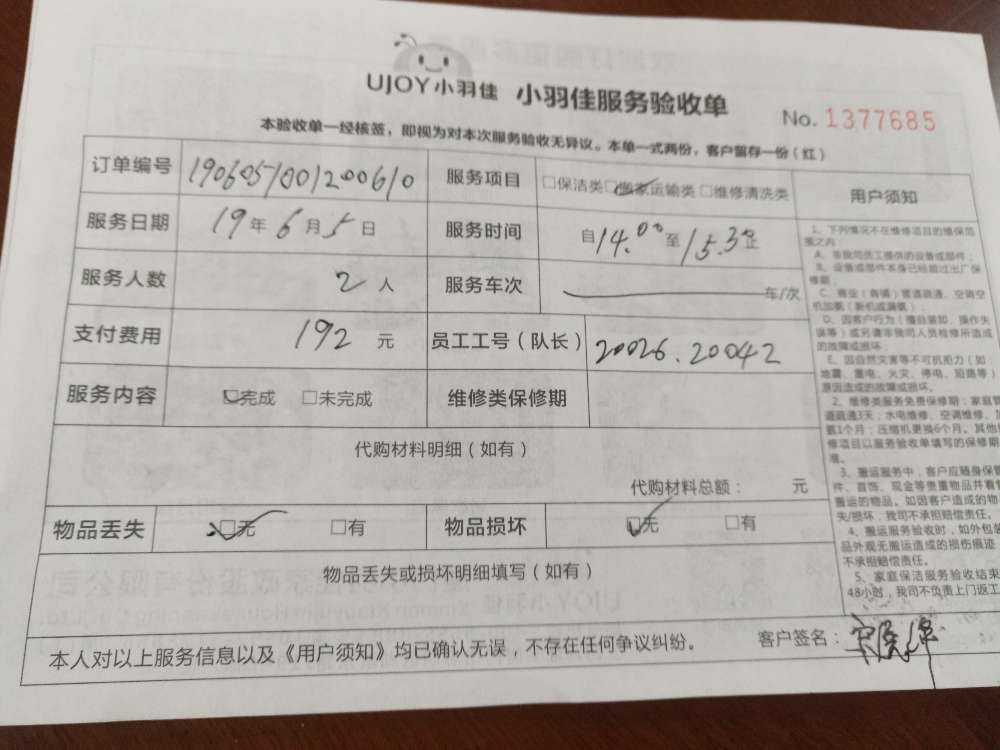 UJOY小羽佳 小羽佳服务验收单
No. 1377685
本验收单一经核签，即视为对本次服务验收无异议。本单一式两份，客户留存一份（红）
订单编号 19060510012006010 服务项目 □保洁类□搬家运输类□维修清洗类
服务日期 19年6月5日 服务时间 自14.00至15.30止
服务人数 2人 服务车次 车/次
支付费用 192元 员工工号（队长） 20026.20042
服务内容 □完成 □未完成 维修类保修期
代购材料明细（如有）
代购材料总额： 元
物品丢失 □无 □有 物品损坏 □无 □有
物品丢失或损坏明细填写（如有）
本人对以上服务信息以及《用户须知》均已确认无误，不存在任何争议纠纷。 客户签名：
用户须知
1、下列情况不在维修项目的维保范
围之内：
A、非我司员工提供的设备或部件；
B、设备或部件本身已经超过出厂保
修期；
C、商业（商铺）管道疏通、空调空
机加氨（新机或漏氨）；
D、因客户行为（擅自装卸、操作失
误等）或另请非我司人员检修所造成
的故障或损坏；
E、因自然灾害等不可抗拒力（如
地震、雷电、火灾、停电、短路等）
原因造成的故障或损坏。
2、维修类服务免费保修期：家庭管
道疏通3天；水电维修、空调维修、加
氨1个月；压缩机更换6个月。其他
修项目以服务验收单填写的保修期
准。
3、搬运服务中，客户应随身保管
件、首饰、现金等贵重物品并看管
搬运的物品。如因客户造成的物
失/损坏，我司不承担赔偿责任。
4、搬运服务验收时，如外包装
品外观无搬运造成的损伤痕迹
不承担赔偿责任。
5、家庭保洁服务验收结束
48小时，我司不负责上门返工